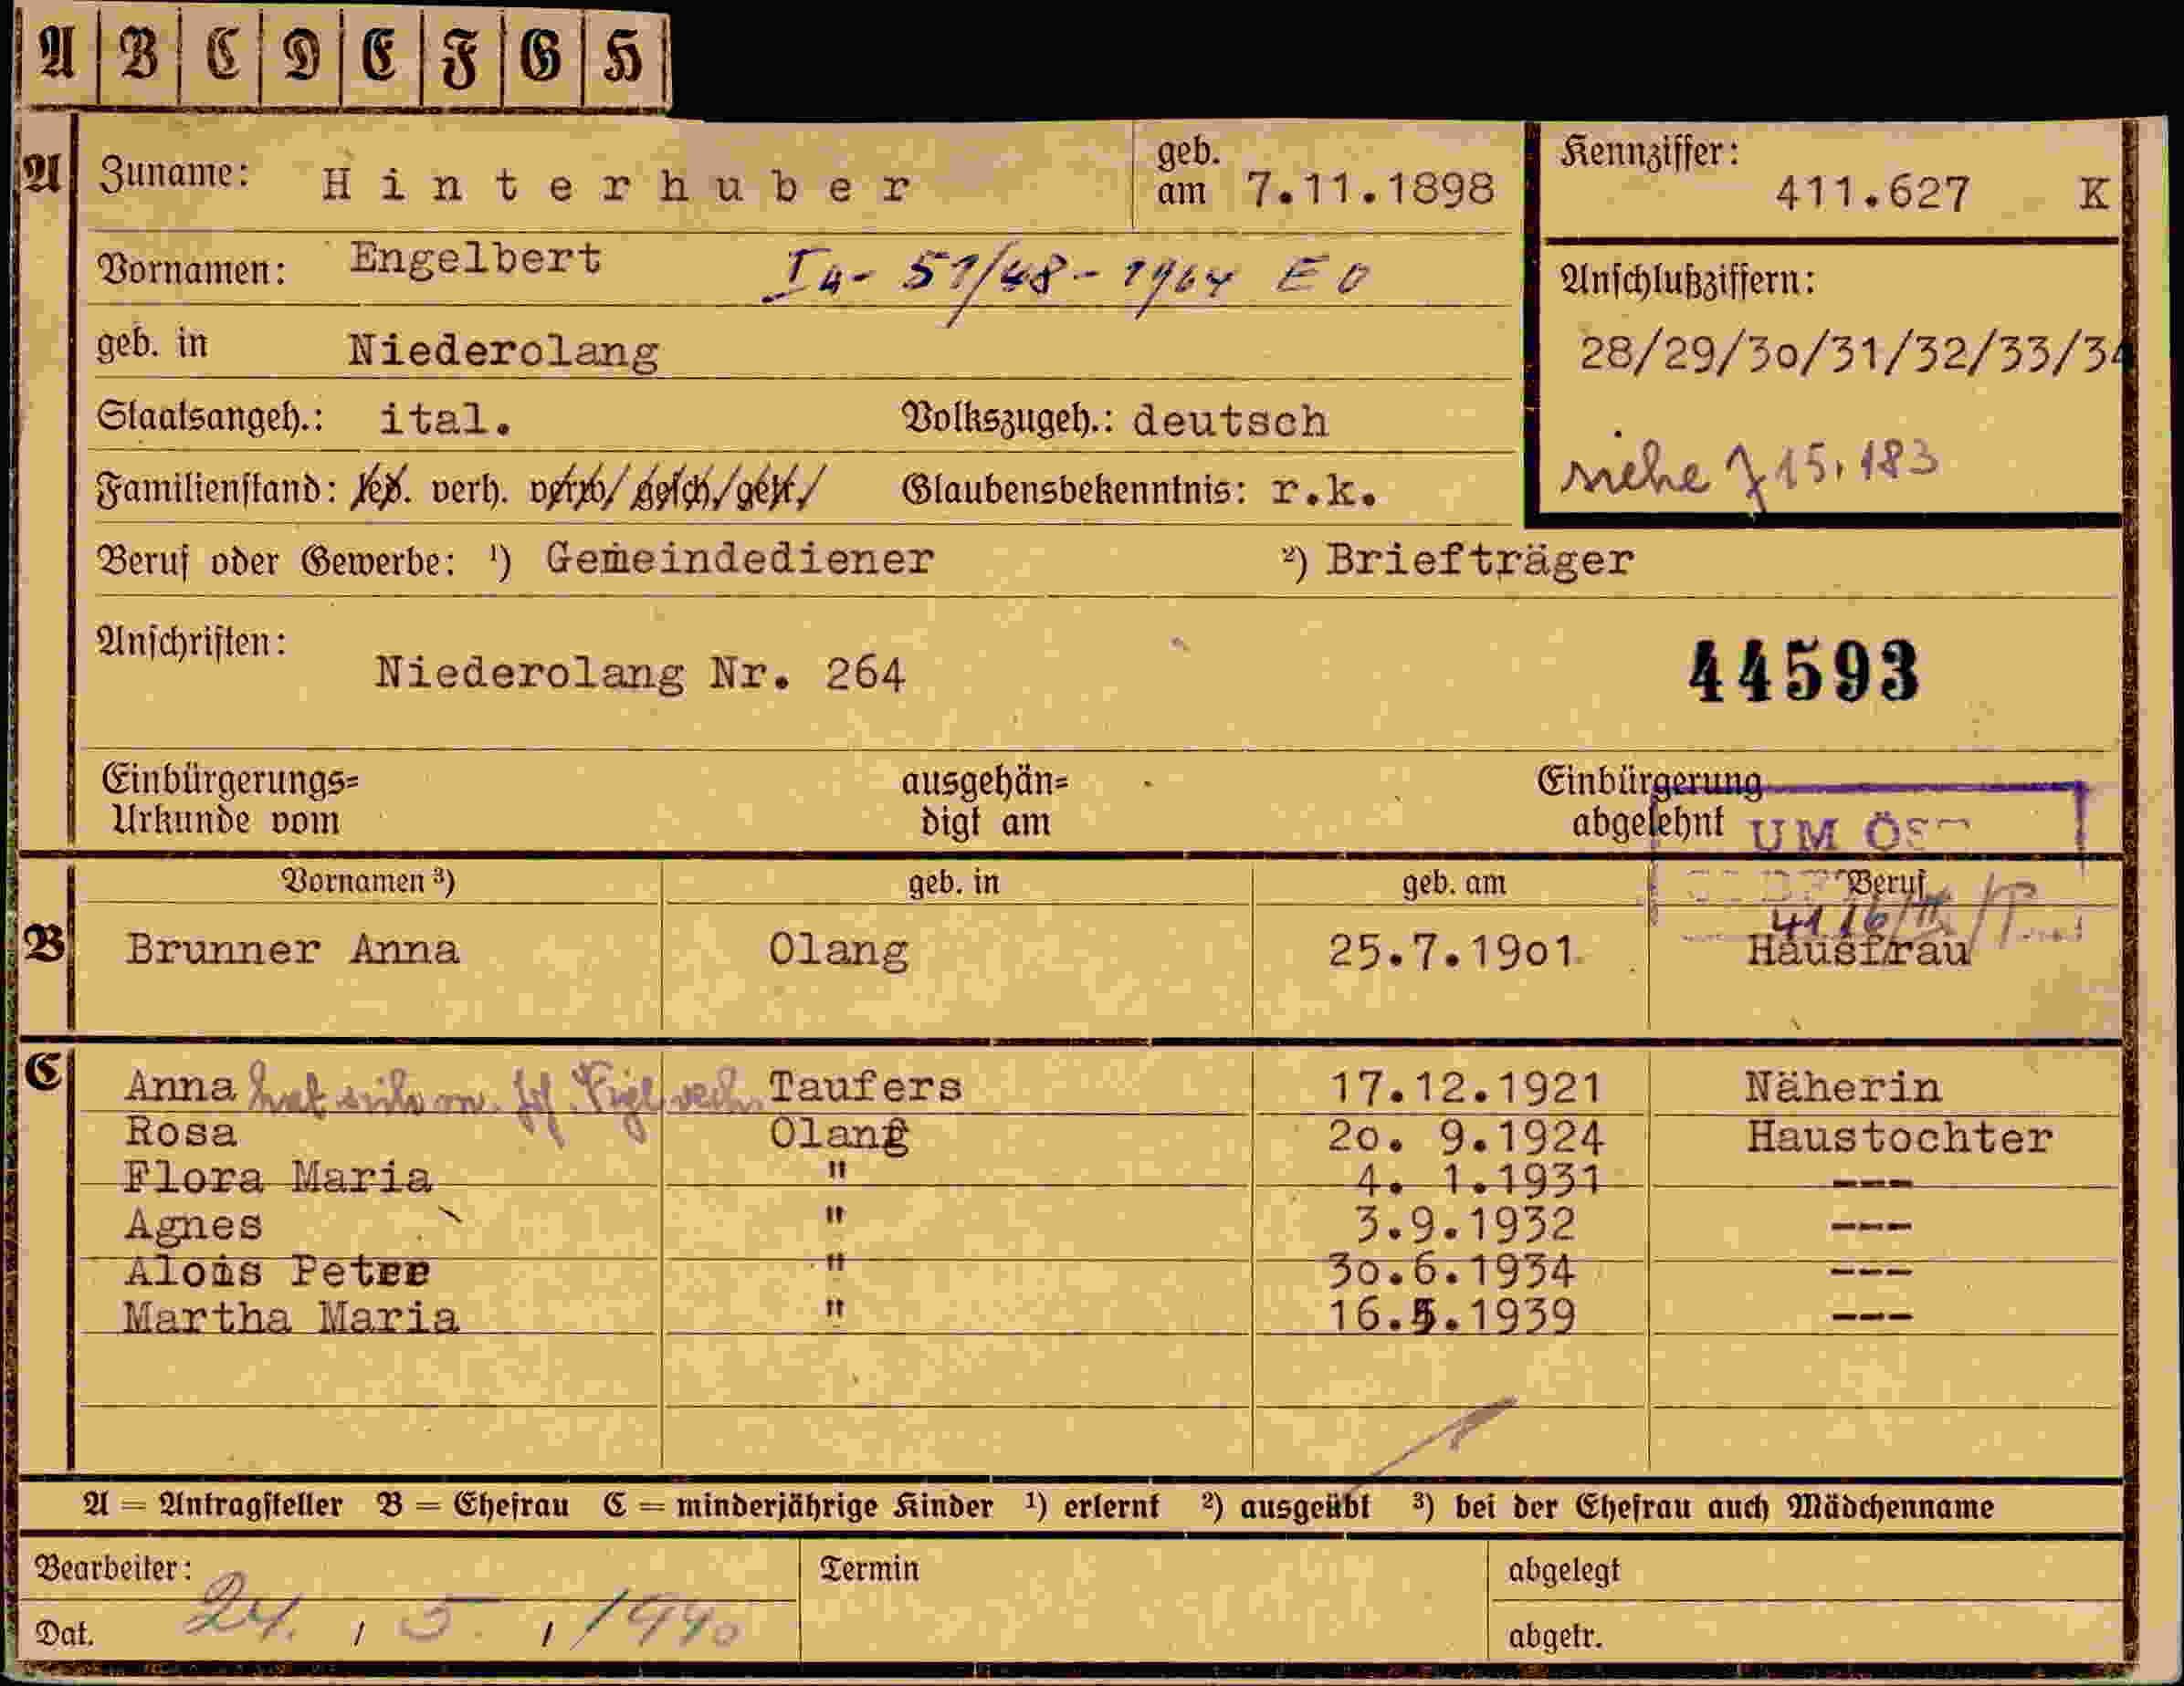 A B C D E F G H
A Zuname: Hinterhuber geb. am 7.11.1898 Kennziffer: 411.627 K
Vornamen: Engelbert Anschlußziffern:
geb. in Niederolang 28/29/30/31/32/33/34
Staatsangeh.: ital. Volkszugeh.: deutsch
siehe J 15.183
Familienstand: led. verh. verw. gesch. getr. Glaubensbekenntnis: r.k.
Beruf oder Gewerbe: ¹) Gemeindediener ²) Briefträger
Anschriften:
Niederolang Nr. 264 44593
Einbürgerungs= ausgehän= Einbürgerung
Urkunde vom digt am abgelehnt UM
Vornamen ³) geb. in geb. am Beruf
B Brunner Anna Olang 25.7.1901 Hausfrau
C Anna hat sich m. Vigl Taufers 17.12.1921 Näherin
Rosa Olang 20. 9.1924 Haustochter
Flora Maria " 4. 1.1931 ---
Agnes " 3.9.1932 ---
Alois Peter " 30.6.1934 ---
Martha Maria " 16.5.1939 ---
A = Antragsteller B = Ehefrau C = minderjährige Kinder ¹) erlernt ²) ausgeübt ³) bei der Ehefrau auch Mädchenname
Bearbeiter: Termin abgelegt
Dat. 24. / 5. / 1940 abgetr.